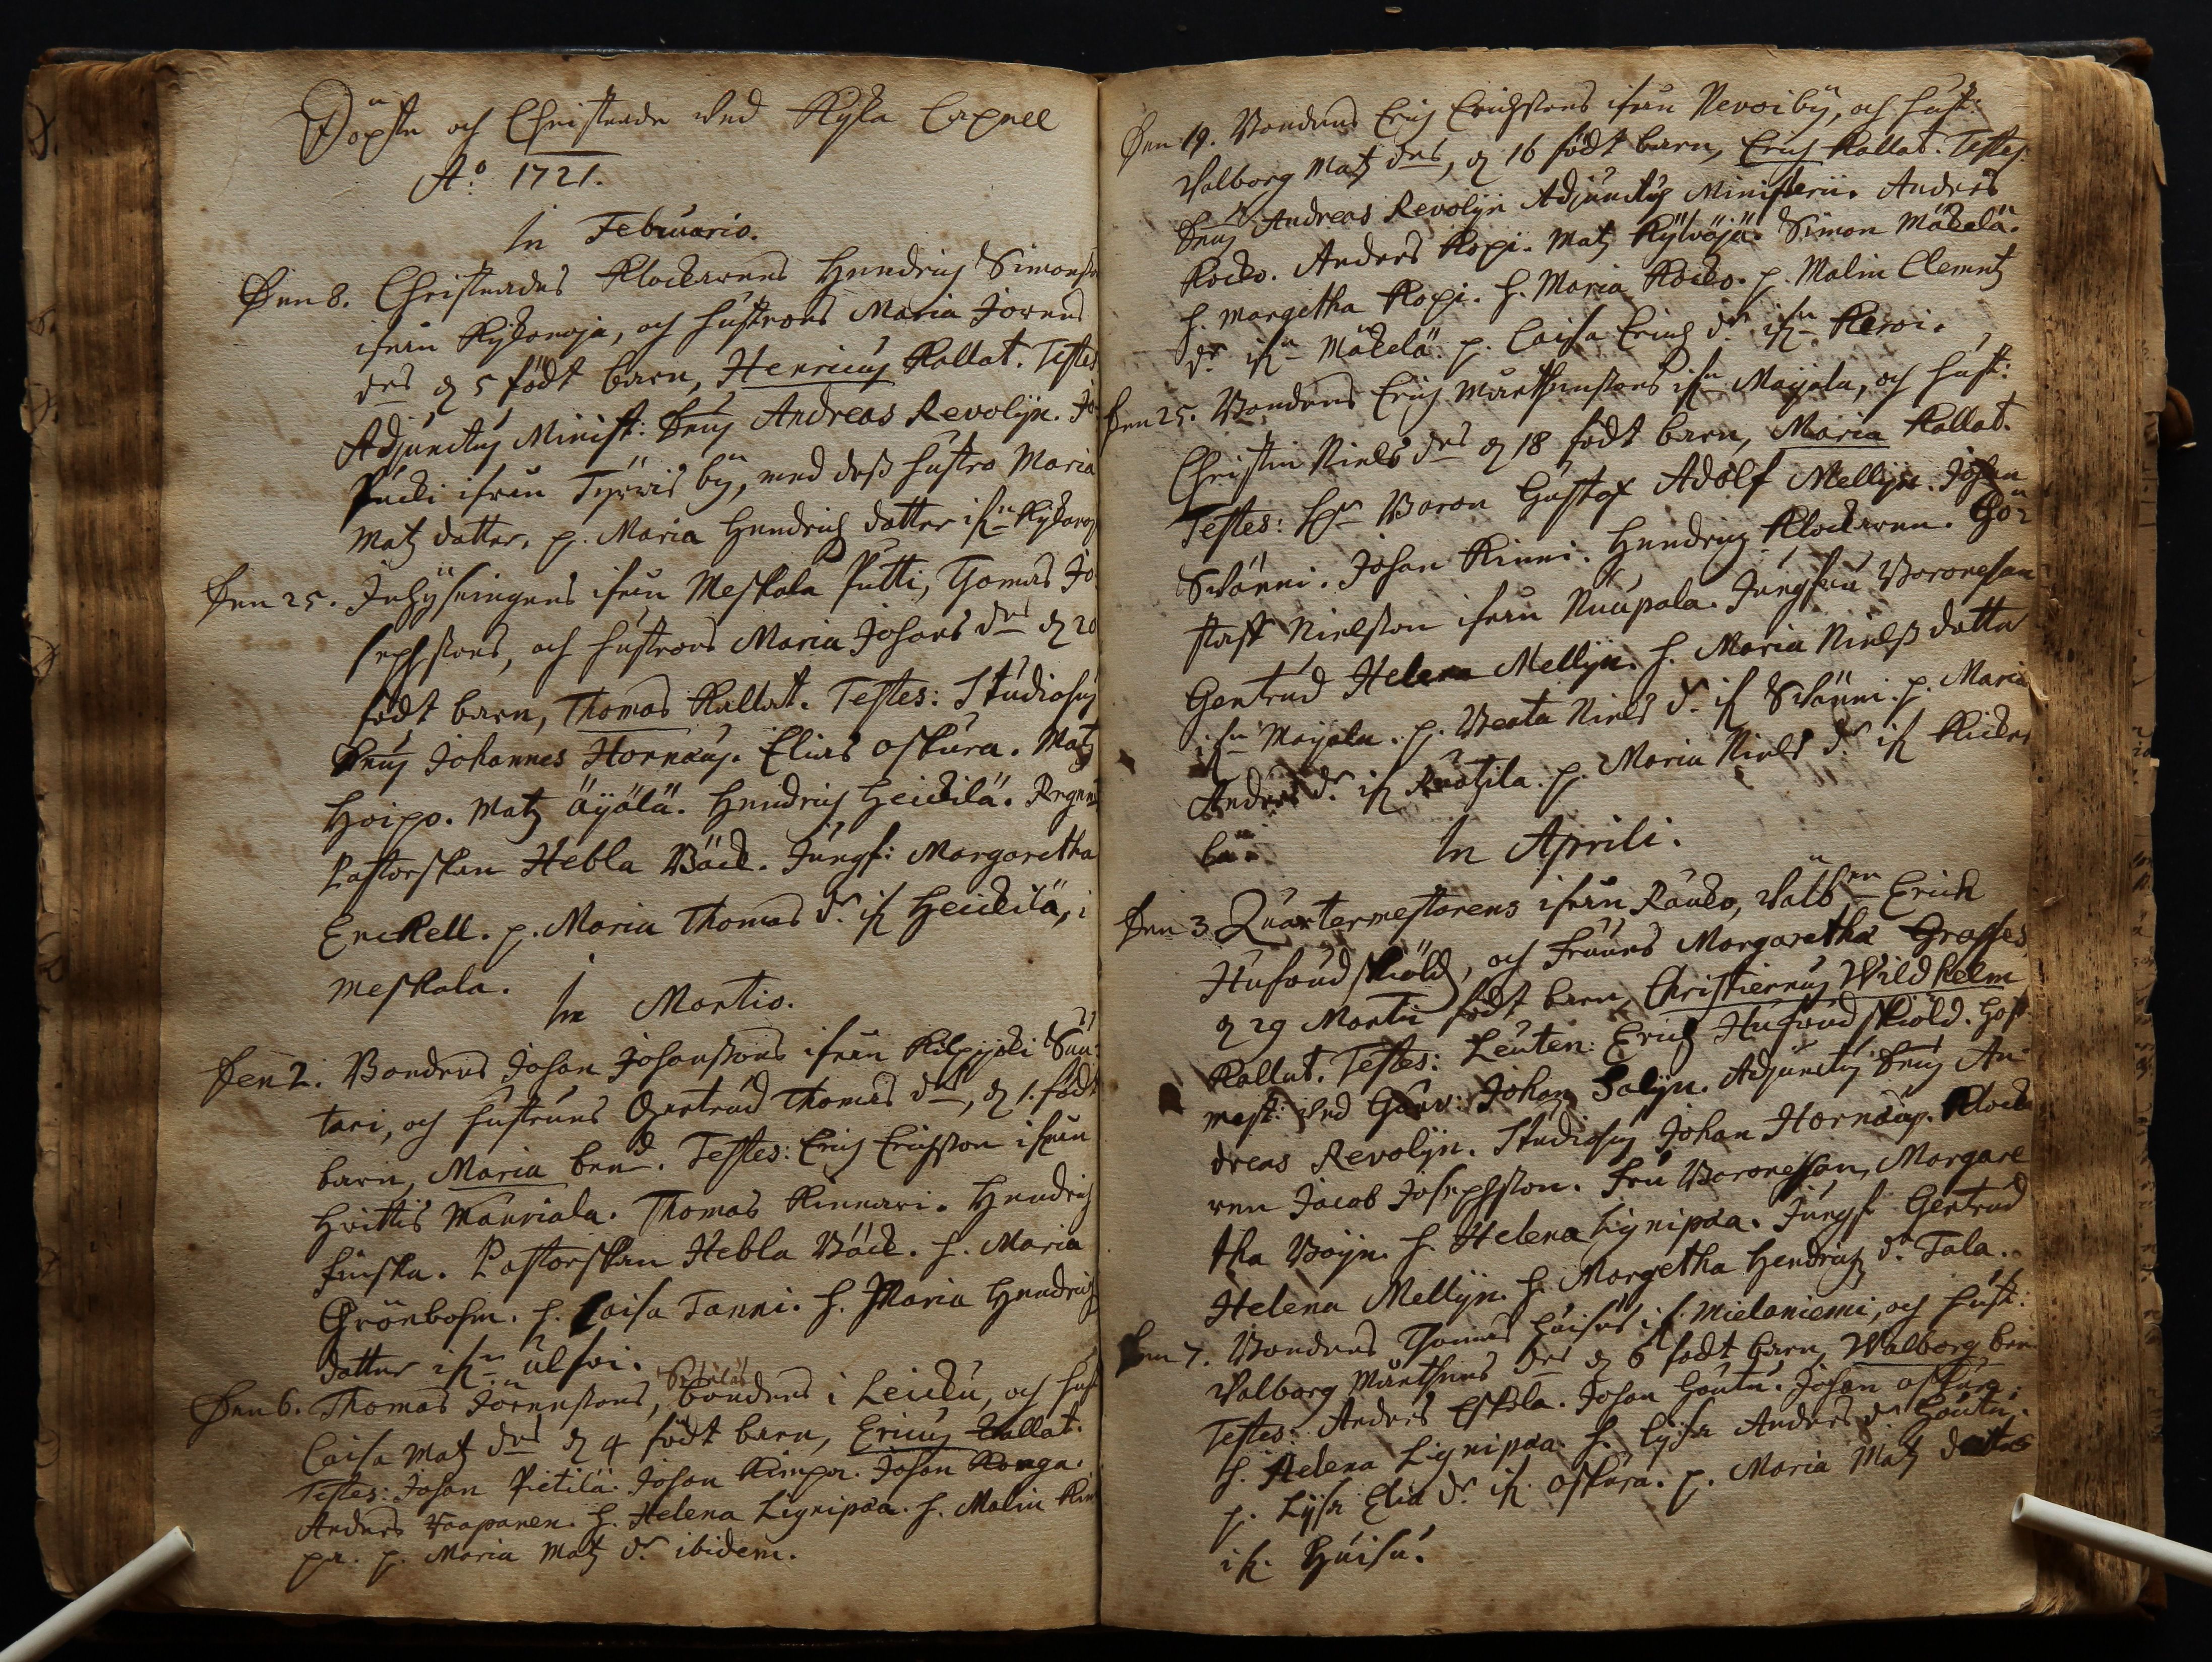 Döpte och Christnade wed Kyla Capell
A:o 1721.
In Februario.
Den 8. Christnades Klockarens Hendrich Simons
ifrån Kyskoroja, och hustrons Maria Jörens
drs d 5 född barn, Henricus Kallat. Testes
Adjunctus Minist: Dnus Andreas Revolijn. Jo-
Packi ifrån Tyrwis by, med dess hustro Maria
Matz dotter. p. Maria Hendrichs dotter ifn
Den 25. Inhysingens ifrån Meskala Putti, Thomas Jo-
sephsons, och hustrons Maria Johans drs d 20
födt barn, Thomas Kallat. Testes: Studiosus
Dnus Johannes Hornæus. Elias oskura. Matz
Hoipo. Matz Äyälä. Hendrich Heickilä. Regem
Pastorskan Hebla Bäck. Jungf: Margaretha
Enckell. p. Maria Thomas dr if Heickilä, i
Meskala.
In Martio.
Den 2. Bondens Johan Johanssons ifrån Kilpijoki Sun-
tari, och hustruns Gertrud Thomas drs, d 1. född
barn, Maria ben.d Testes: Erich Erichsson ifrån
Hvittis Mauriala. Thomas Kinnari. Hendrich
finska. Pastorskan Hebla Bäck. h. Maria
Grönbohm. h. Caisa Tanni. h. Maria Hendrichs
dotter ifn ulfoi.
Den 6. Thomas Jörensons, bondens i Leicku, och hust
Caisa Matz drs d 4 födt barn, Ericus Kallat.
Testes: Johan Pietilä. Johan Kimpa. Johan Konga.
Anders Vaapanen. h. Helena Lignipæa. h. Malin Kim-
pa. p. Maria Matz dr ibidem.
Den 19. Bondens Erich Erichssons ifrån Nevoiby, och hust:
Valborg Matz drs, d 16 födt barn, Erich Kallat. Testes:
Dnus Andreas Revolijn Adjunctus Ministerii. Anders
Kocko. Anders Kopi. Matz Kylväjä. Simon Mäkelä.
h. Margetha Kopi. h. Maria Kocko. p. Malin Clemetz
dr ifn Mäkelä. p. Caisa Erichs dr ifn Keroi.
Den 25. Bondens Erich Mårthenssons ifn Maijala, och hust:
Christin Niels drs d 18 födt barn, Maria Kallat.
Testes: Hr Baron Gustaf Adolf Mellijn. Johan
Skänni. Johan Kinni. Hendrich Klockaren. Gö-
staff Nielsson ifrån Nuupala. Jungfru Baronessan
Gertrud Helena Mellijn. h. Maria Nielss dotter
ifn Maijala. p. Beata Niels d. if Skänni. p. Maria
Anders dr if Ruotzila. p. Maria Niels dr if Kicker
by.
In Aprili.
Den 3 Quartermestarens ifrån Raucko, välb.en Erich
Hufvudskiöld, och Fruens Margaretha Grasses
d 29 Martii födt barn, Christiernus Wildhelm
Kallat. Testes: Leuten: Erich Hufvudskiöld. Hof-
mest: ved Garv: Johan Salijn. Adjunctus Dnus An-
dreas Revolijn. Studiosus Johan Hornæus. Klocka
ren Jacob Josephsson. Fru Baronessan, Margare
tha Boijn. h. Helena Lignipæa. Jungf Gertrud
Helena Mellijn. h. Margetha Hendrichs dr Tala.
Den 7. Bondens Thomas Huisus if. Mielaniemi, och hust:
Valborg Mårthens drs d 6 födt barn, Walborg ben
Testes: Anders Eskola. Johan Houtu. Johan oskura.
h. Helena Lignipæa. h. Lysa Anders dr Houtu.
p. Lysa Elia dr if. oskura. p. Maria Matz dotter
if. Huisu.